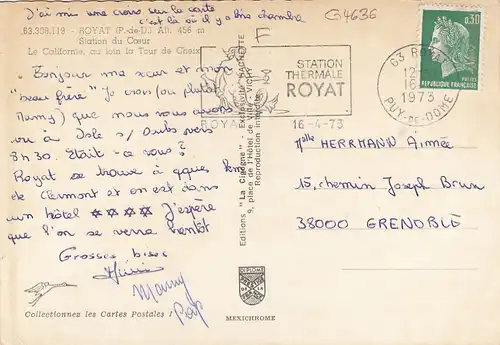 J'ai mis une croix sur la carte
c'est là où il y a les chambres
G4636
F
63.308.119 - ROYAT (P.-de-D.) Alt. 456 m
Station du Cœur
Le Californie, au loin la Tour de Cheix
Bonjour ma sœur et mon
"beau frère" Je crois (ou plutôt
Mamy) que nous vous avons
vu à Dole s/Doubs vers
8h30. Était-ce vous?
Royat se trouve à qques kms
de Clermont et on est dans
un hôtel ✡✡✡✡ J'espère
que l'on se verra bientôt
Grosses bises
Mamy
Pap
Collectionnez les Cartes Postales !
MEXICHROME
DIPLOME
Editions "La Cigogne" - Exclusivité HACHETTE
9, place de l'Hôtel de Ville - VICHY
Reproduction interdite
ROYAT
STATION
THERMALE
ROYAT
16-4-73
63 ROYAT
12
16
1973
PUY-DE-DOME
0,30
POSTES
REPUBLIQUE FRANÇAISE
Melle HERRMANN Aimée
15, chemin Joseph Brun
38000 GRENOBLE